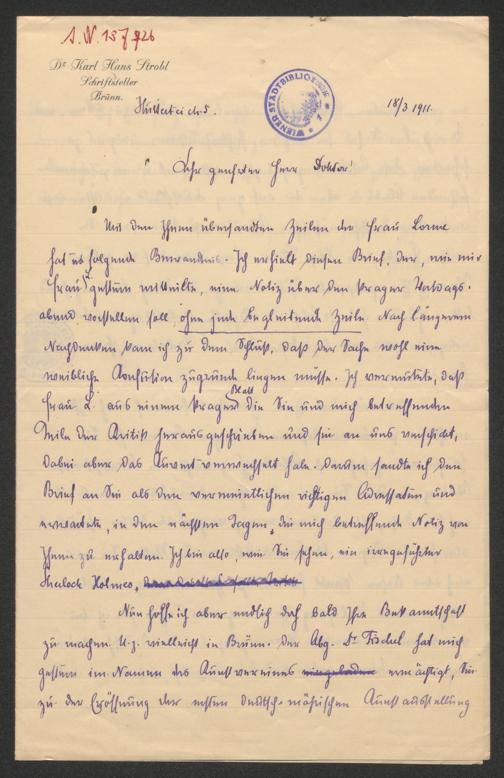 I.N. 157926
Dr Karl Hans Strobl
Schriftsteller
Brünn.
WIENER STADTBIBLIOTHEK
18/3 1911.
Sehr geehrter Herr Doktor!
Mit den Ihnen übersandten Zeilen der Frau Lorme
hat es folgende Bewandtnis. Ich erhielt diesen Brief, der, wie mir
Frau L. gestern mitteilte, eine Notiz über den Prager Vortrags-
abend vorstellen soll, ohne jede begleitende Zeile. Nach längerem
Nachdenken kam ich zu dem Schluß, daß der Sache wohl eine
weibliche Konfusion zugrunde liegen müsse. Ich vermutete, daß
Frau L. aus einem Prager Blatt die Sie und mich betreffenden
Teile der Kritik herausgeschnitten und sie an uns verschickt,
dabei aber das Kuvert verwechselt habe. Darum sandte ich den
Brief an Sie als den vermeintlichen richtigen Adressaten und
erwartete, in den nächsten Tagen, die mich betreffende Notiz von
Ihnen zu erhalten. Ich bin also, wie Sie sehen, ein irregeführter
Sherlock Holmes,
Nun hoffe ich aber endlich doch bald Ihre Bekanntschaft
zu machen u.z. vielleicht in Brünn. Der Abg. Dr Fischel hat mich
gestern im Namen des Kunstvereines ermächtigt, Sie
zu der Eröffnung der ersten deutsch-mährischen Kunstausstellung